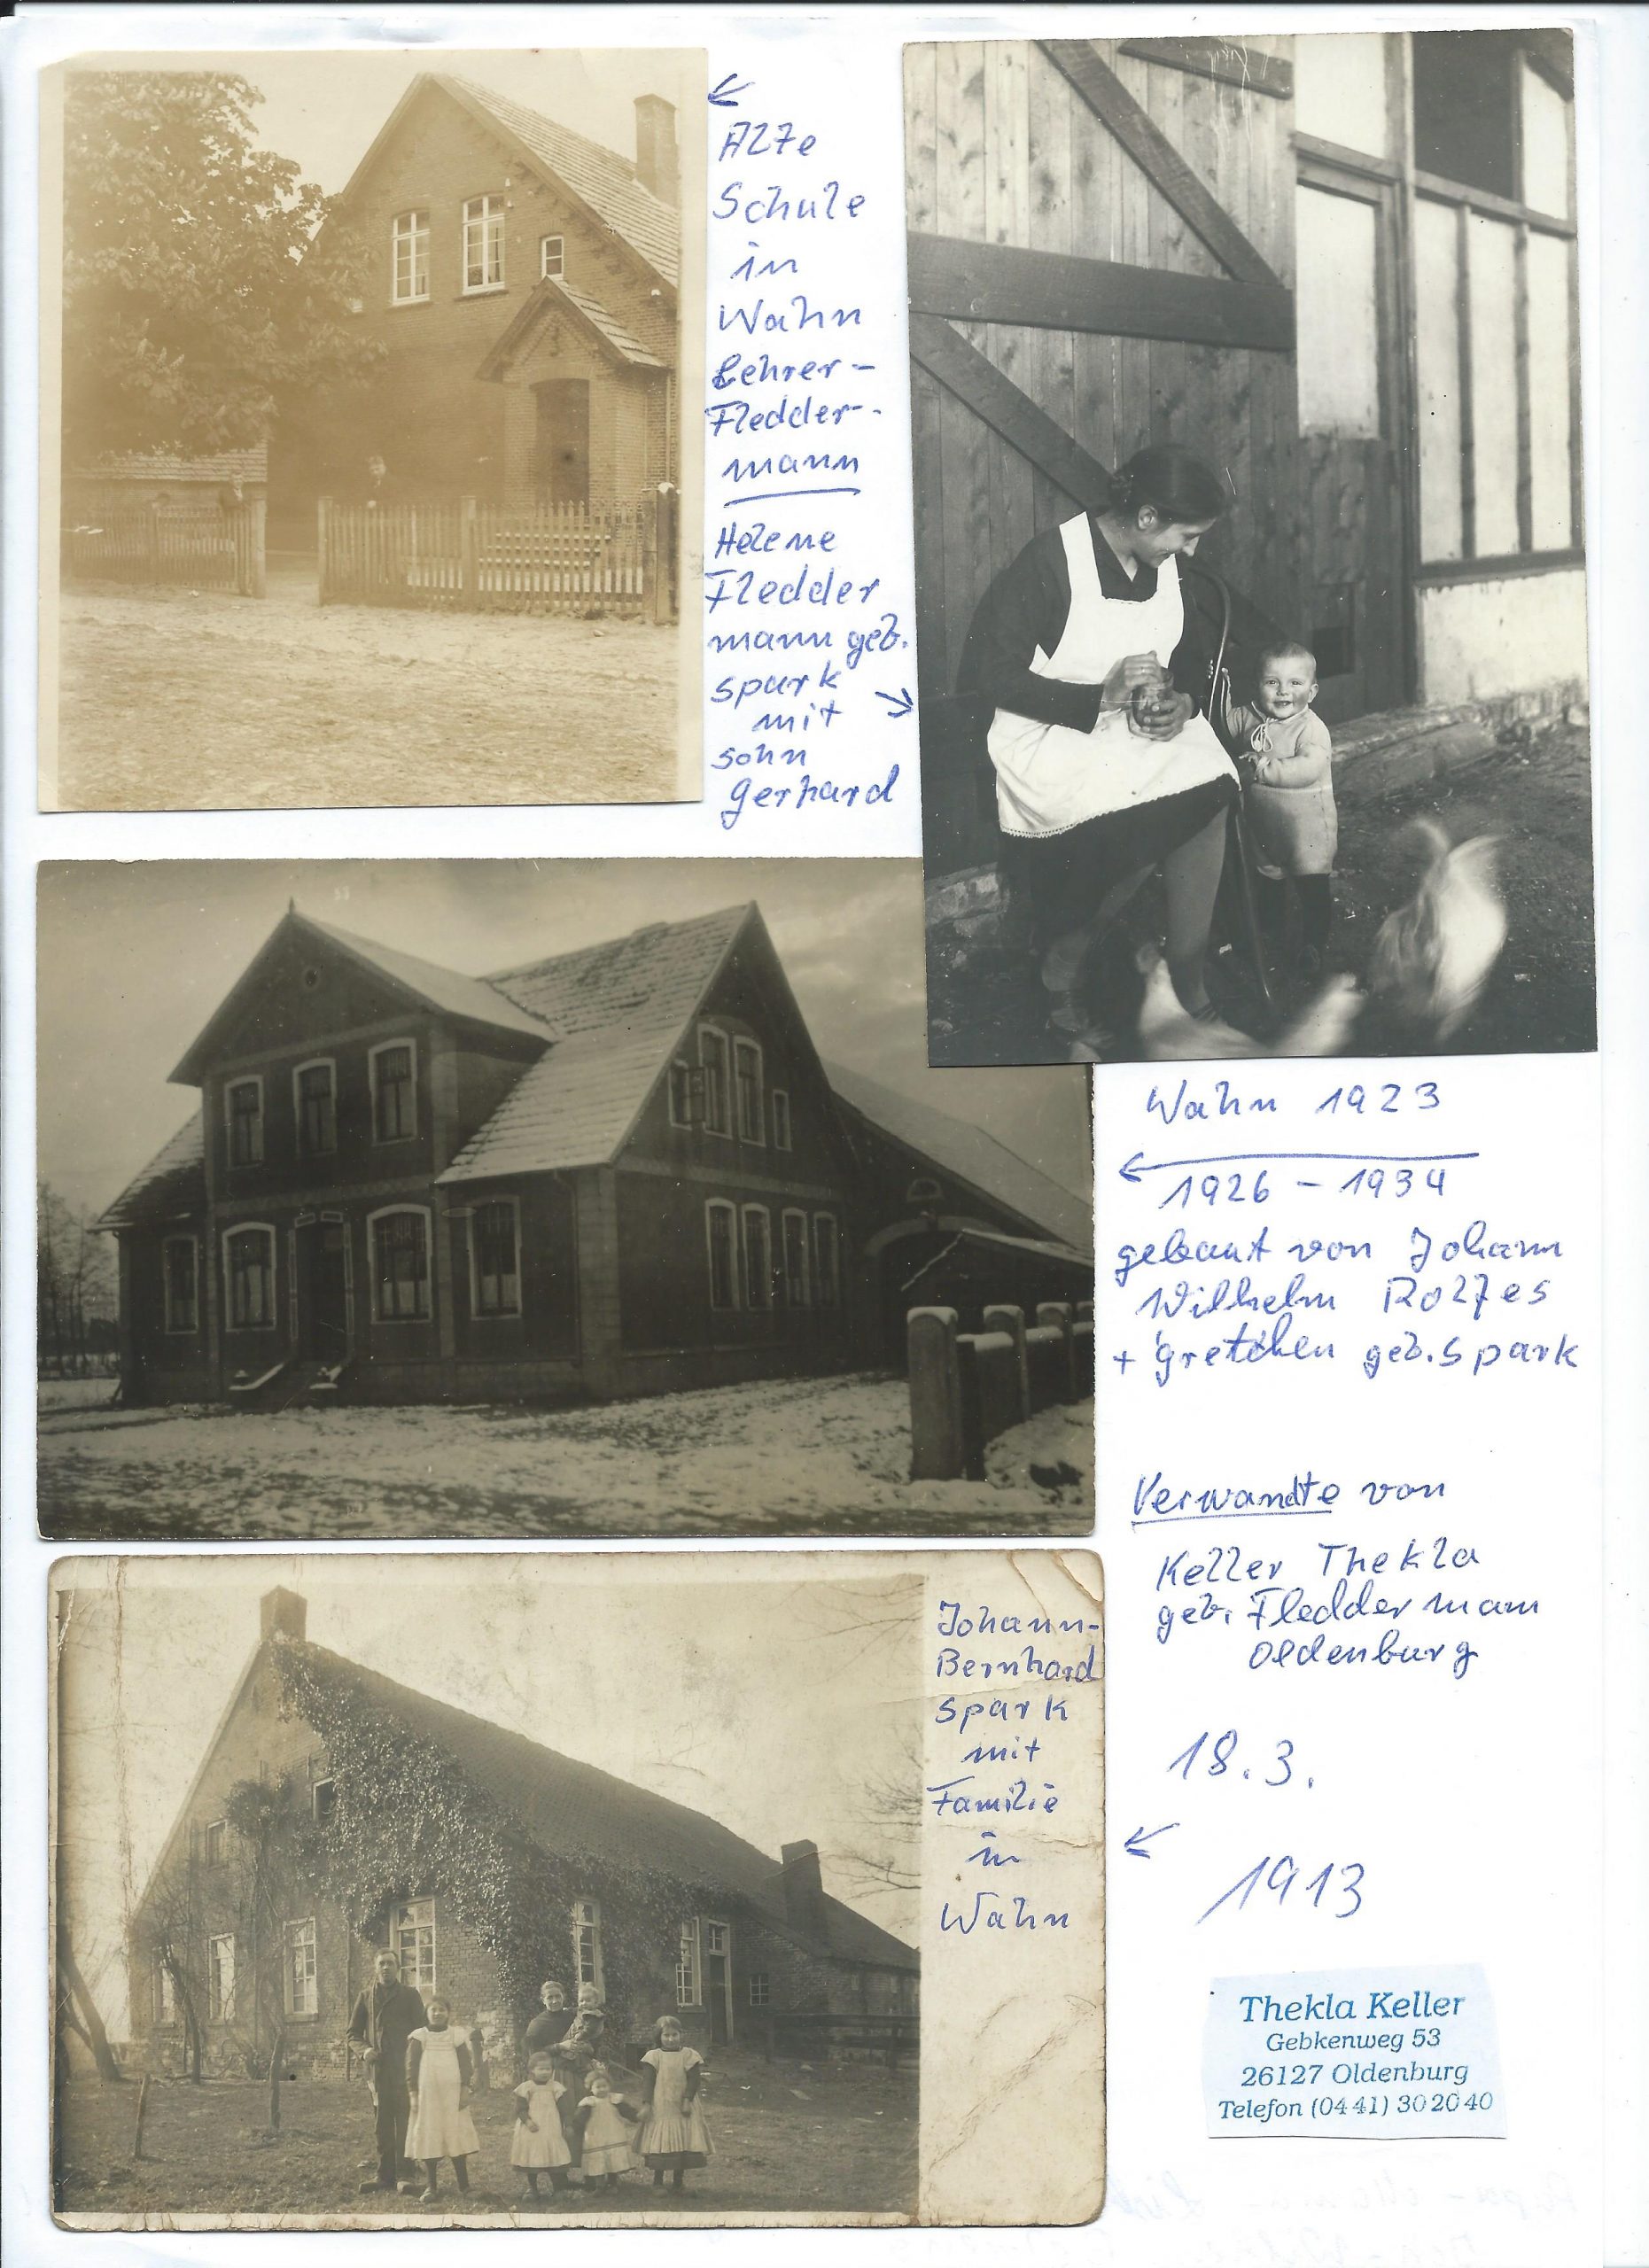 Alte
Schule
in
Wahn
Lehrer-
Fledder-
mann
Helene
Fledder
mann geb.
Spark
mit
Sohn
Gerhard
Wahn 1923
1926 - 1934
gebaut von Johann
Wilhelm Rolfes
+ Gretchen geb. Spark
Verwandte von
Keller Thekla
geb. Fleddermann
Oldenburg
Johann-
Bernhard
Spark
mit
Familie
in
Wahn
18.3.
1913
Thekla Keller
Gebkenweg 53
26127 Oldenburg
Telefon (04 41) 30 20 40